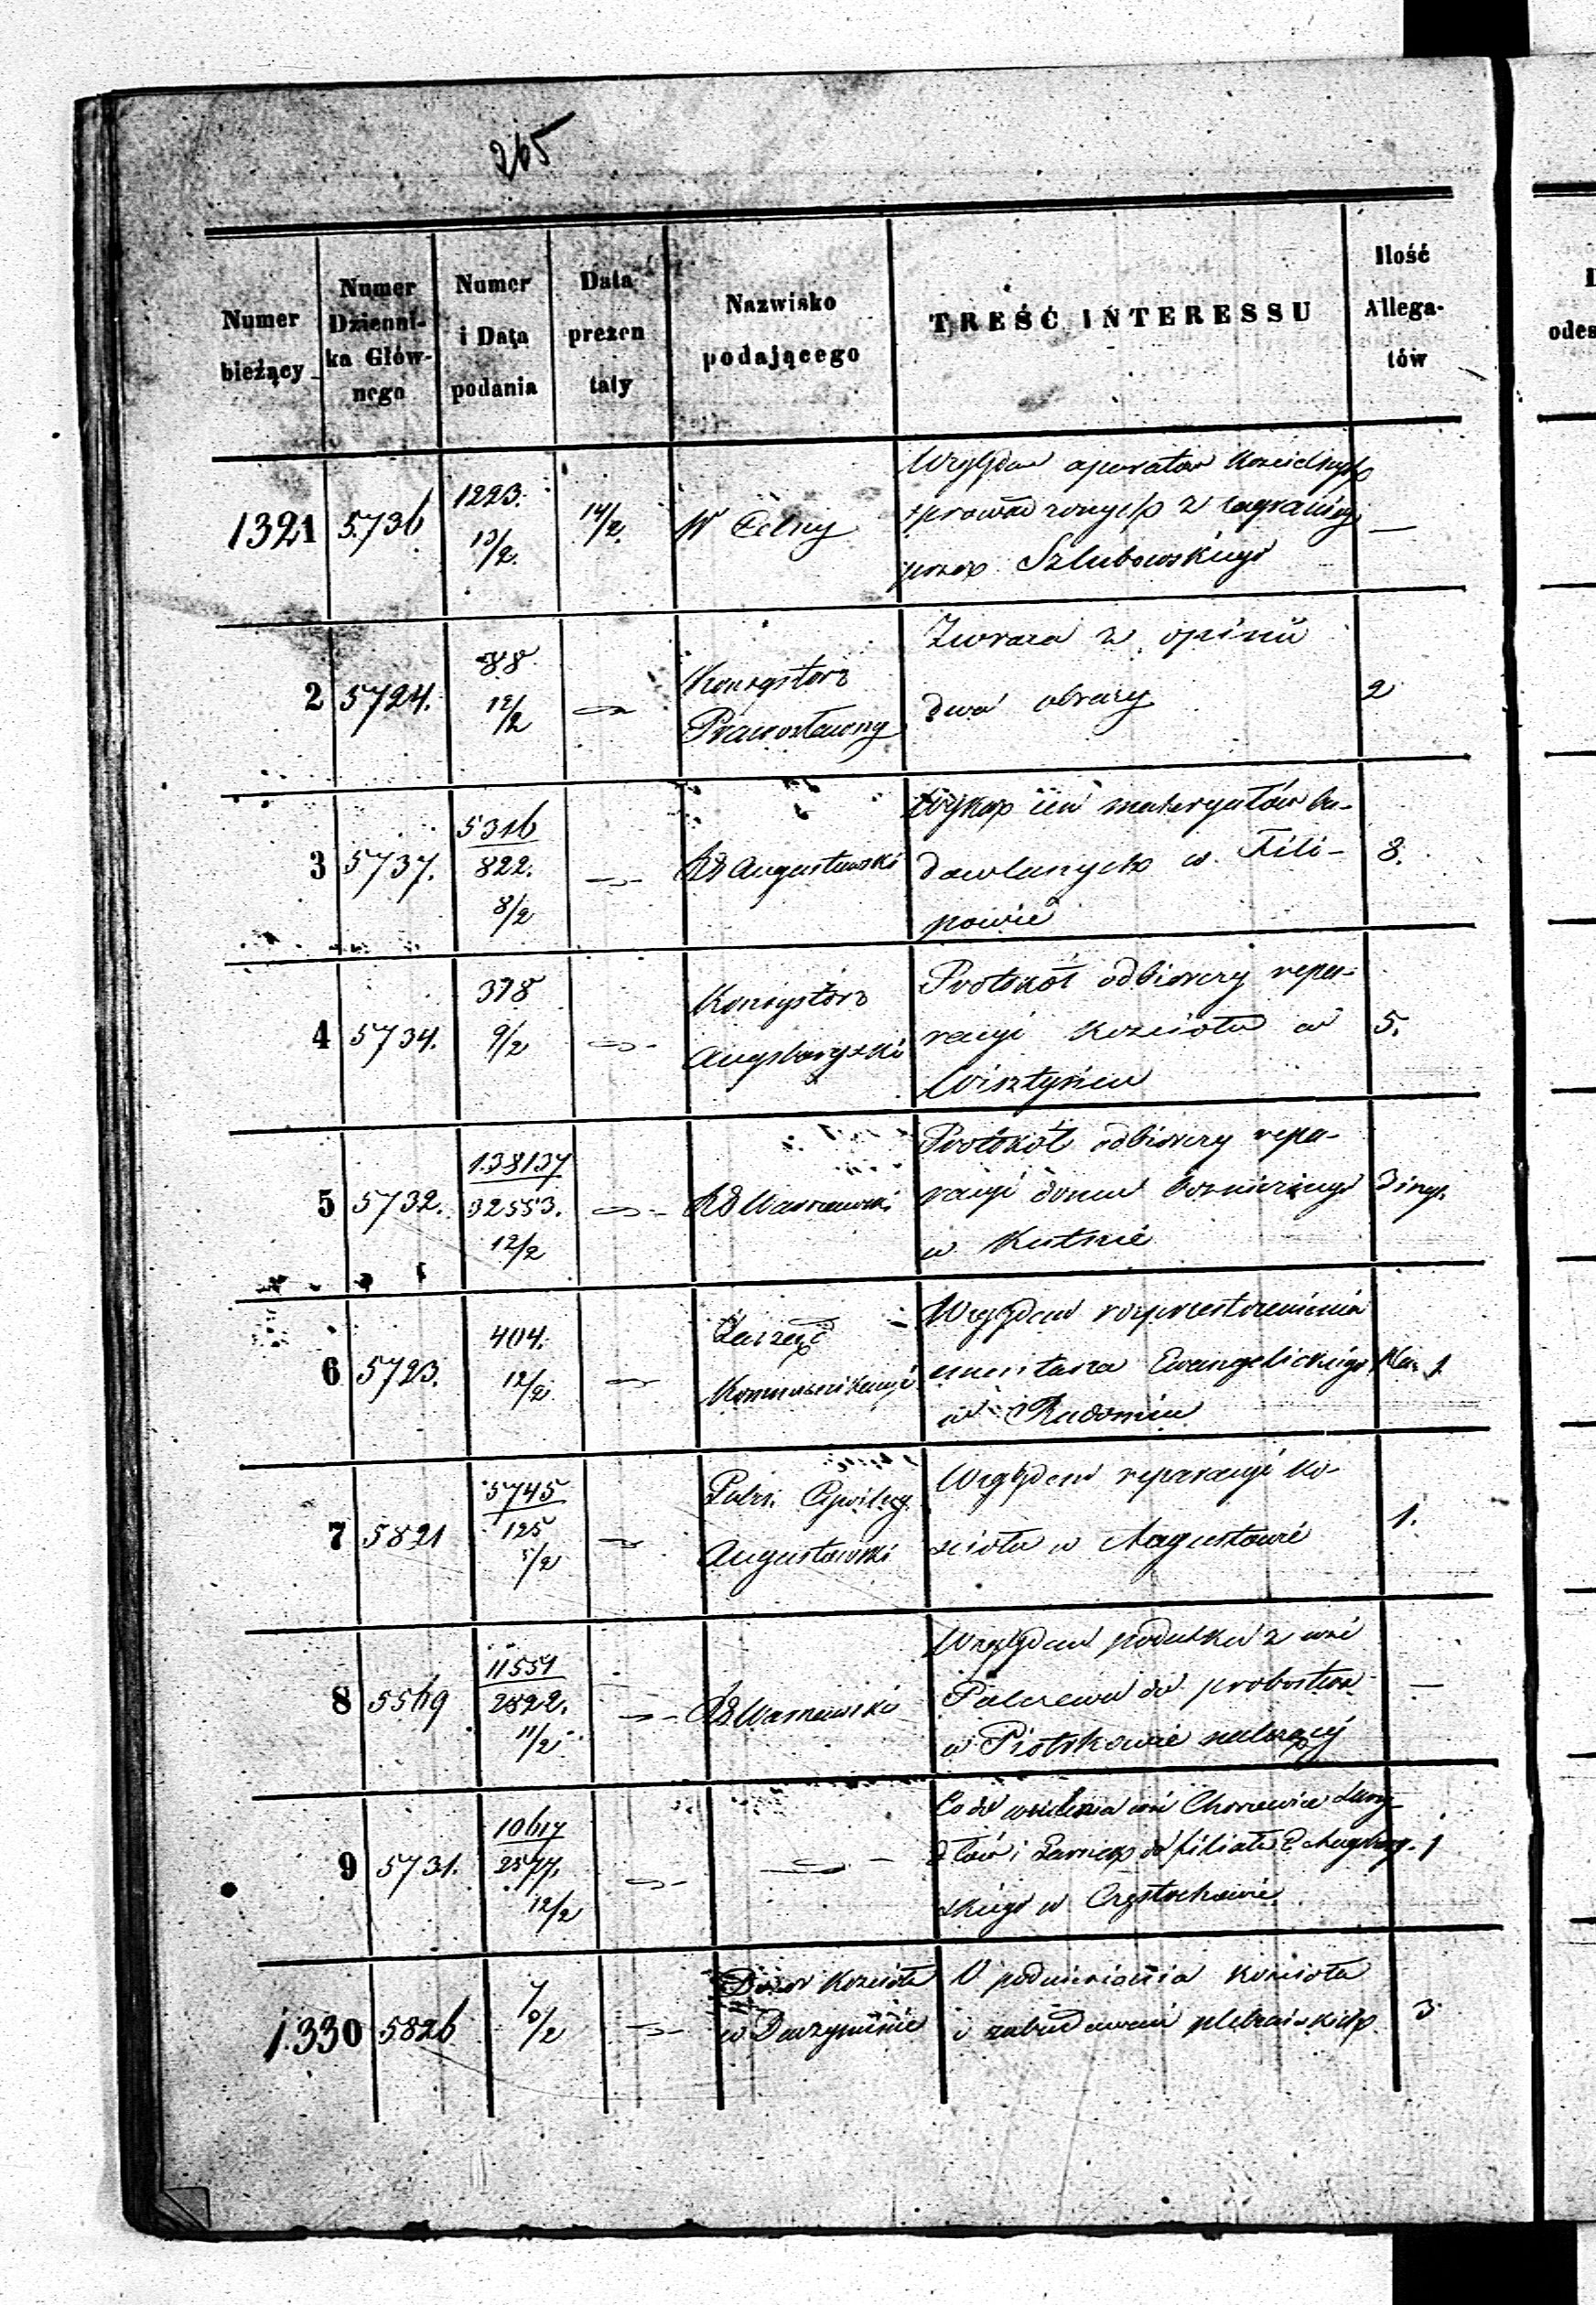 265
Numer bieżący
Numer Dzienni-ka Głów-nego
Numer i Data podania
Data prezen taty
Nazwisko podającego
TREŚĆ INTERESSU
Ilość Allega-tów
1321 5736 1223. 13/2. 14/2. W Celny
Względem aparatów kościelnych
sprowadzonych z zagranicy —
przez Szlubowskiego
2 5724. 88 12/2 Konsystorz Prawosławny
Zwraca z opinii
dwa obrazy 2
3 5737. 5316 822. 8/2 RG Augustowski
Wykaz cen materyałów bu-
dowlanych w Fili- 8.
powie
4 5734. 378 9/2 Konsystorz Augsburgski
Protokół odbiorczy repa-
racyi kościoła w 5.
Wisztyńcu
5 5732. 138137 32553. 12/2 RG Warszawski
Protokół odbiorczy repa-
racyi domu bożniczego
w Kutnie
6 5723. 404. 12/2 Zarząd Kommunikacyi
Względem rozprzestrzenienia
cmentarza Ewangelickiego 1
w Radomiu
7 5821 5745 125 5/2 Cywilny Augustowski
Względem reparacyi ko-
ścioła w Augustowie 1.
8 5569 11551 2822. 11/2 RG Warszawski
Względem podatku z wsi
do probostwa —
w Piotrkowie należącej
9 5731. 10617 2577. 12/2
Co do wcielenia wsi
i do filiału E. Augsburg- 1
skiego w Częstochowie
1330 5826 7 Dozór Kościoła
O podniesienia kościoła
i zabudowań plebańskich 3